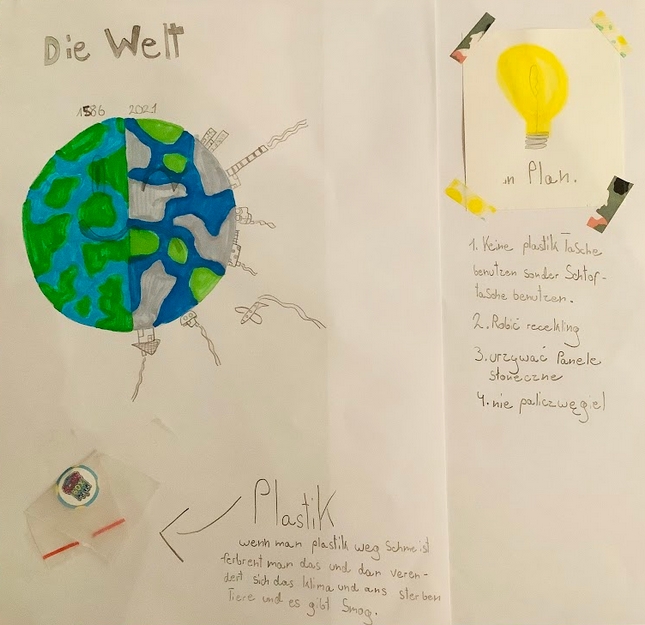 Die Welt
1586 2021
m Plan.
1. Keine plastik Tasche
benutzen sonder Schtof-
tasche benutzen.
2. Robić recekling
3. urzywać Panele
słoneczne
4. nie palicz węgiel
Plastik
wenn man plastik weg schmeist
ferbrent man das und dan veren-
dert sich das klima und aus sterben
Tiere und es gibt Smog.